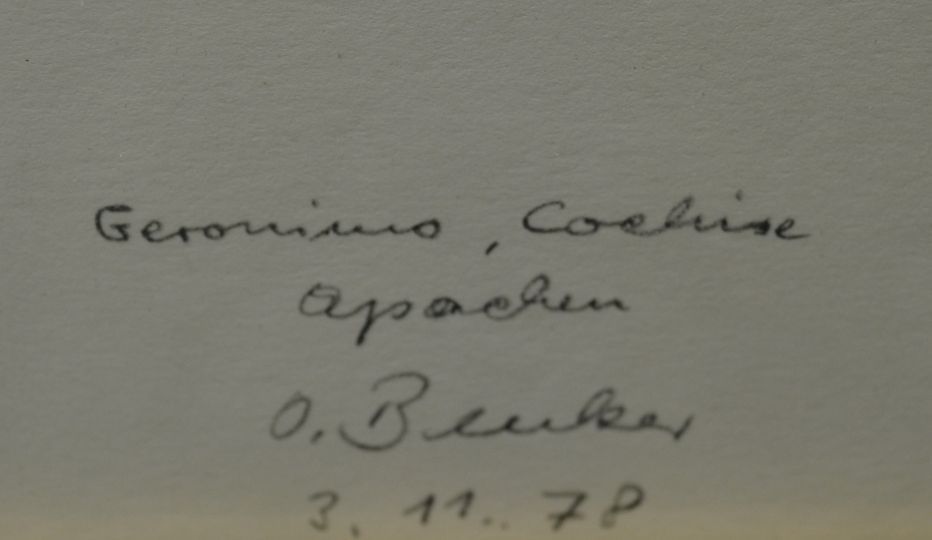 Geronimo, Cochise
Apachen
O. Benker
3. 11. 78